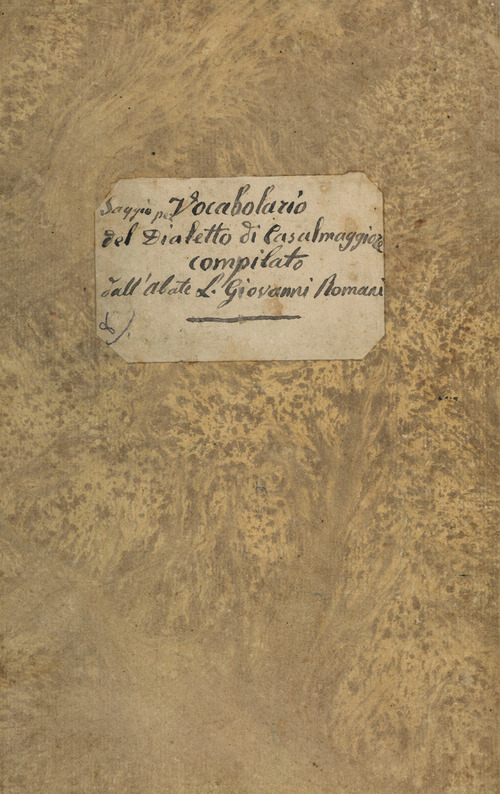 Saggio per Vocabolario
del Dialetto di Casalmaggiore
compilato
dall'Abate L. Giovanni Romani